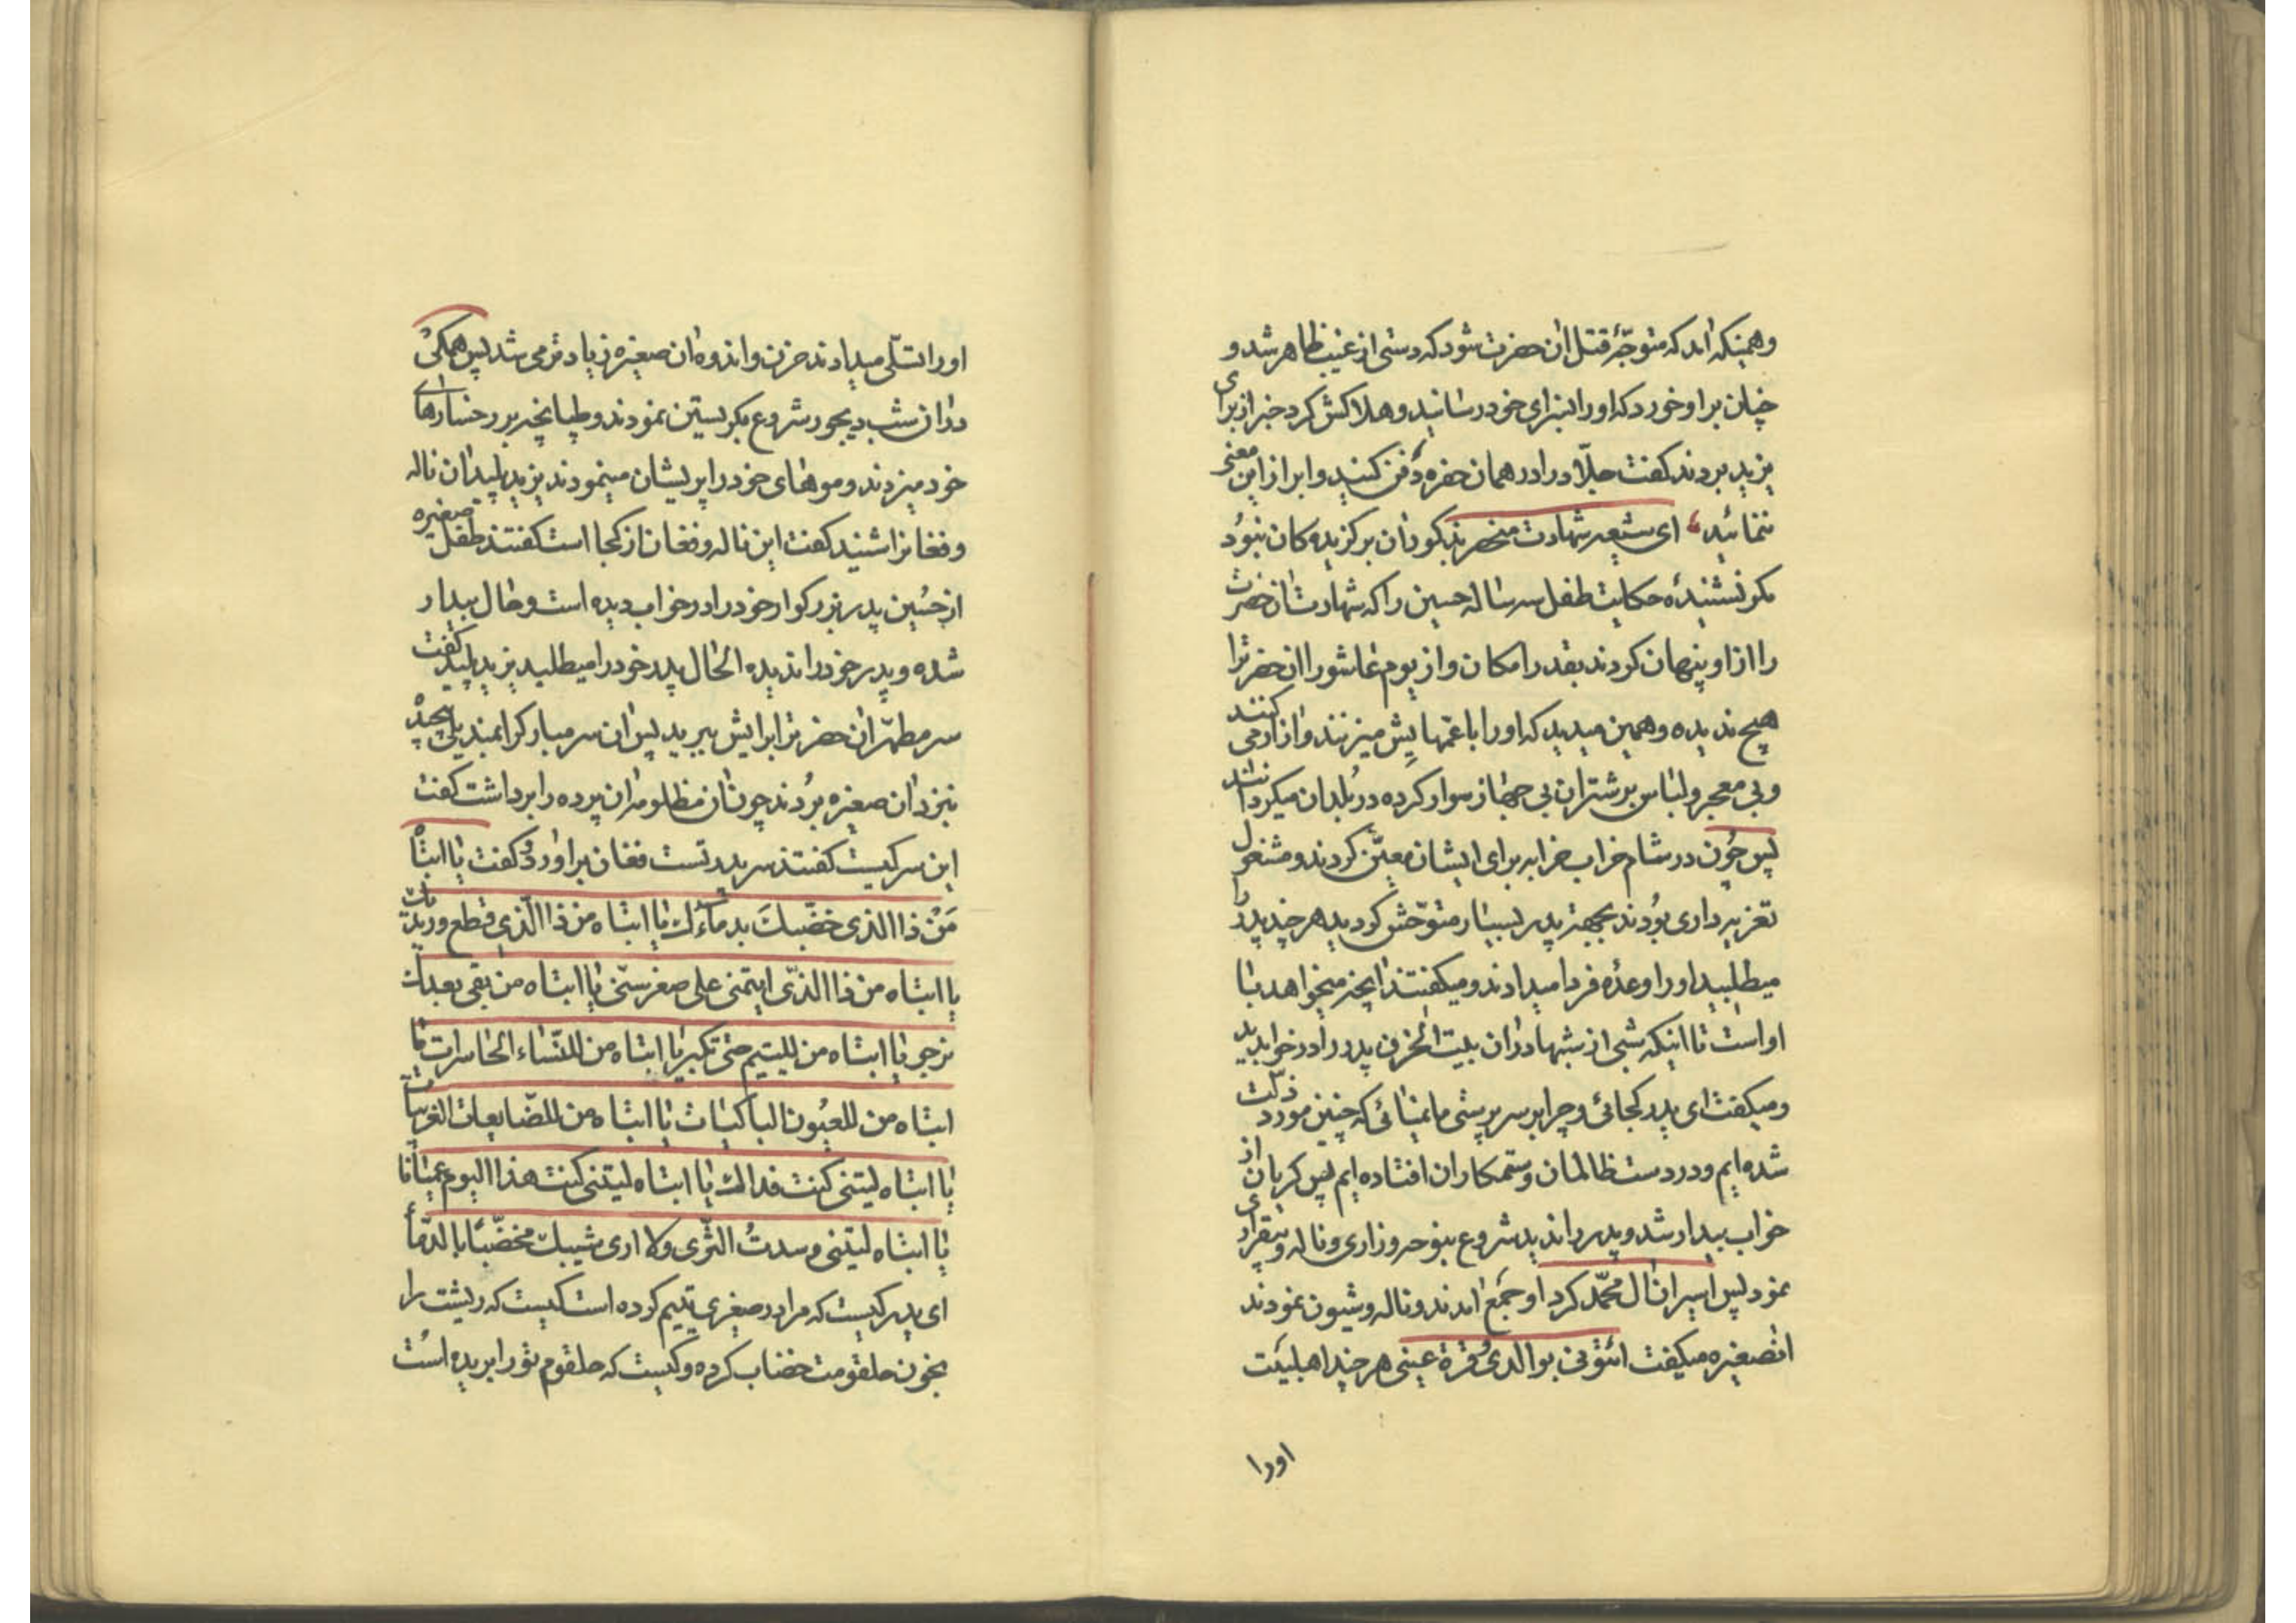 وهمینکه امد که متوجّه قتل ان حضرت شود که دستی از غیب ظاهر شد و
چنان بر او خورد که او را بسزای خود رسانید و هلاکش کرد خبر از برای
یزید بردند کفت جلّاد را در همان حفره دفن کنید و ابراز این معنی
ننمائید ای شیعه شهادت منحصر بذکور ان برکزیده کان نبود
مکر نشنیدهٔ حکایت طفل سه ساله حسین را که شهادت ان حضرت
را از او پنهان کردند بقدر امکان و از یوم عاشورا ان حضرترا
هیچ ندیده و همین میدید که او را با عمهایش میزنند و ازار می کنند
و بی معجر و لباس بر شتران بی جهاز سوار کرده در بلدان میکردانند
پس چون در شام خراب خرابه برای ایشان معیّن کردند و مشغول
تعزیه داری بودند بجهة پدر بسیار متوحّش کردید هر چند پدر را
میطلبید او را وعدهٔ فردا میدادند و میکفتند انچه میخواهد با
او است تا اینکه شبی از شبها در ان بیت الحزن پدر را در خواب دید
و میکفت ای پدر کجائی و چرا بر سر پرستی ما نمیائی که چنین مورد ذلّت
شده ایم و در دست ظالمان و ستمکاران افتاده ایم پس کریان از
خواب بیدار شد و پدر را ندید شروع بنوحه و زاری و ناله و بیقراری
نمود پس اسیران ال محمّد کرد او جمع امدند و ناله و شیون نمودند
انصغیره میکفت ائتونی بوالدی و قرة عینی هر چند اهلبیت
اورا
او را تسلّی میدادند حزن و اندوه ان صغیره زیادتر می شد پس همکی
در ان شب دیجور شروع بکریستن نمودند و طپانچه بر رخسارهای
خود میزدند و موهای خود را پریشان مینمودند یزید پلید ان ناله
و فغانرا شنید کفت این ناله و فغان از کجا است کفتند طفل صغیره
از حسین پدر بزرکوار خود را در خواب دیده است و حال بیدار
شده و پدر خود را ندیده الحال پدر خود را میطلبد یزید پلید کفت
سر مطهّر ان حضرترا برایش ببرید پس ان سر مبارکرا بمندیلی پیچیده
بنزد ان صغیره بردند چون ان مظلومه ان پرده را برداشت کفت
این سر کیست کفتند سر پدر تست فغان براورد و کفت یا ابتاه
مَنْ ذا الذی خضّبک بدمائک یا ابتاه من ذا الّذی قطع وریدیک
یا ابتاه من ذا الذّی ایتمنی علی صغر سنّی یا ابتاه من بقی بعدک
نرجو یا ابتاه من للیتیم حتی تکبر یا ابتاه من للنّساء الحاسرات یا
ابتاه من للعیون الباکیات یا ابتاه من للضّایعات الغریبات
یا ابتاه لیتنی کنت فداک یا ابتاه لیتنی کنت هذا الیوم عمیانا
یا ابتاه لیتنی وسدتُ الثّری ولا اری شیبک مخضّبًا بالدّماء
ای پدر کیست که مرا در صغیری یتیم کرده است کیست که ریشت را
بخون حلقومت خضاب کرده و کیست که حلقوم تو را بریده است